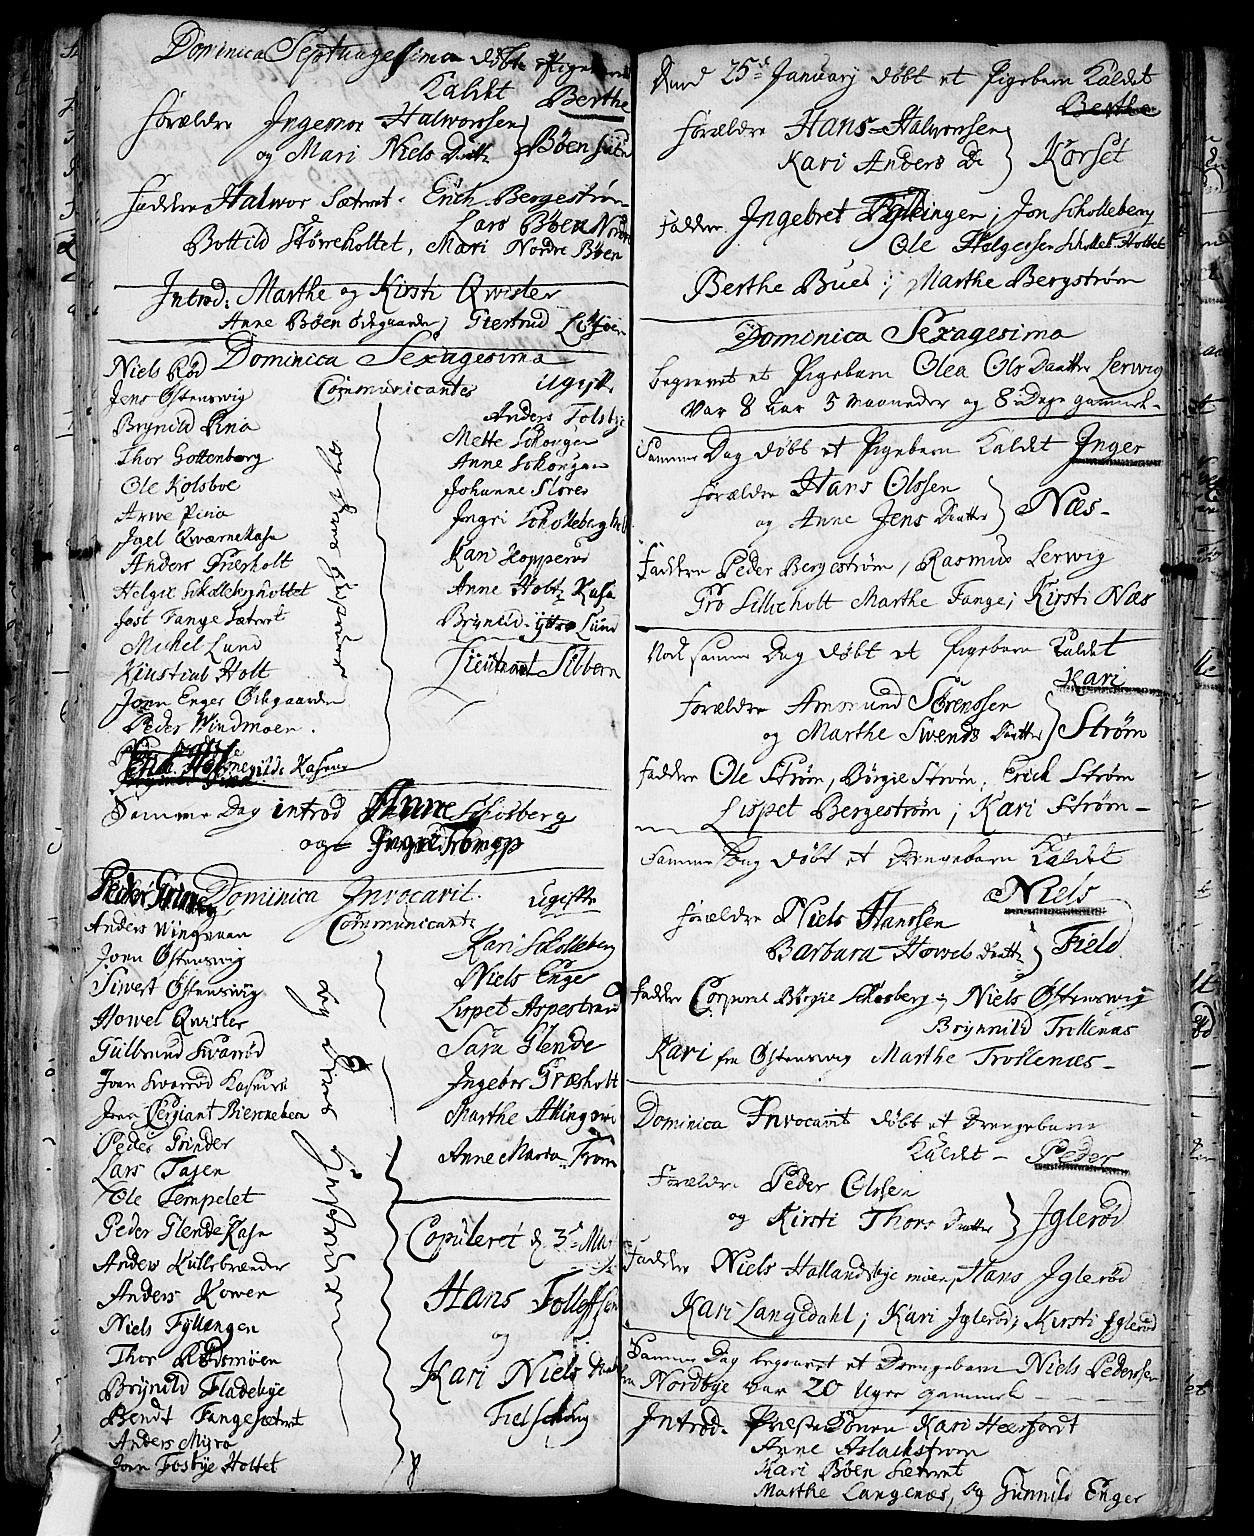 Dominica Septuagesima döbt Pigebarn
Kaldet Berthe
Forældre Ingemor Halworssen
og Mari Niels Dattr } Böen Sæter
Faddere Halwor Sætret. Erich Bergeström
Lars Böen Nordre
Bottild Störreholtet, Mari Nordre Böen
Introd: Marthe og Kirsti Qwisler
Anne Böen Ödegaarden; Giertrud
Dominica Sexagesima
Niels Röd
Communicantes
Jens Östenswig
Brynild Pina
Thor Gottenborg
Ole Kolsboe
Arwe Pina
Joel Qwærnekasa
Anders Griesholt
Helge Skollebergholtet
Jost Tange Sætret
Michel Lund
Kirstine Holt
Jonn Enger Ödegaarden
Peder Windmoen.
og Deres Hustruer
ugifte
Anders Tolsbye
Mette Skorgen
Anne Skorgen
Johanne Flores
Ingri Skolleberg
Kari Kopperud
Anne Holtz Kasa
Brynild ytre Lund
Lieutnant Silbern
Samme Dag introd Anne Skosberg
og Ingri Tromop
Peder Grini Dominica Invocavit.
Communicante
Anders Wingaan
Joen Östenswig
Siwert Östenswig
Howel Qwisler
Gulbrand Swaröd
Joen Swaröd Kasin
Joen Sergiant Biennebeen
Peder Grinder
Lars Tajen
Ole Tempelet
Peder Glende Kasa
Anders Kullebrænder
Anders Kowen
Niels Fyllingen
Thor Rödsmöen
Brynild Fladebye
Bendt Tangesætret
Anders Myra
Joen Fosbye Holtet
og Deres Hustruer
ugifte
Kari Skolleberg
Niels Enge
Lispet Aspestrand
Sara Glende
Ingebor Græsholt
Marthe Allingswi
Anne Maria From
Copuleret d. 3 Mar
Hans Tolleffsen
og
Kari Niels Datter
Fielskoug
Dend 25 January döbt et Pigebarn Kaldet
Berthe
Forældre Hans Halworssen
Kari Anders D } Korset
Faddere Ingebret Fyllingen; Jon Skolleberg
Ole Halgessen Skolleb. Holtet
Berthe Bues; Marthe Bergström
Dominica Sexagesima
begravet et Pigebarn Olea Ols Daatter Lerwig
var 8 aar 5 maaneder og 8 Dage gammel.
Samme Dag döbt et Pigebarn Kaldet Inger
Forældre Hans Olssen
og Anne Jens Datter } Næs
Faddere Peder Bergeström, Rasmus Lerwig
Gro Lillieholt Marthe Tange; Kirsti Næs
Nock samme Dag döbt et Pigebarn Kaldet
Kari
Forældre Ammund Sörenssen
og Marthe Swends Datter } Ström
Faddere Ole Ström, Börgie Ström, Erich Ström
Lispet Bergeström; Kari Ström
Samme Dag döbt et Drengebarn Kaldet
Niels
Forældre Niels Hanssen
Barbara Howels Datt } Field
Faddere Corporal Börgie Skosberg, Niels Östenswig
Brynnild Trollenæs
Kari fra Östenswig Marthe Trollenæs
Dominica Invocavit döbt et Drengebarn
Kaldet Peder
Forældre Peder Olssen
og Kirsti Thors Datter } Igleröd
Faddere Niels Hallandsbye moen, Hans Igleröd
Kari Langedahl; Kari Igleröd; Kirsti Igleröd
Samme Dag begravet et Drengebarn Niels Pederssen
Nordbye var 20 Uger gammel
Introd. Kari Heerfordt
Anne Aslackstrom
Kari Böen Sætret
Marthe Langenæs, og Gunnild Enger